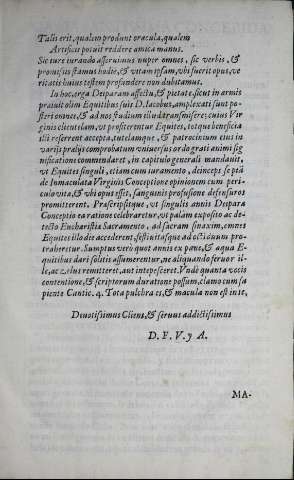 Talis erit, qualem produnt oracula, qualem
Artificis potuit reddere amica manus.
Sic iure iurando asseruimus nuper omnes, sic verbis, &
promissis stamus hodie, & vitam ipsam, vbi fuerit opus, ve
ritatis huius testem profundere non dubitamus.
In hoc, erga Deiparam affectu, & pietate, sicut in armis
præiuit olim Equitibus suis D. Iacobus, amplexati sunt po-
steri omnes, & ad nos studium illud transmisere; cuius Vir
ginis clientelam, vt profiterentur Equites, tot que beneficia
illi referrent accepta, tutelamque, & patrocinium eius tā
varijs prælijs comprobatum vniuersus ordo grati animi sig
nificatione commendaret, in capitulo generali mandauit,
vt Equites singuli, etiam cum iuramento, deinceps se piā
de Immaculata Virginis Conceptione opinionem cum peri-
culo vitæ, & vbi opus esset, sanguinis profusione defensuros
promitterent. Præscripsitque, vt singulis annis Deiparæ
Conceptio ea ratione celebraretur, vt palam exposito ac de-
tecto Eucharistiæ Sacramento, ad sacram sinaxim, omnes
Equites illo die accelerent, festiuitasque ad octiduum pro-
traheretur. Sumptus verò quot annis ex pane, & aqua E-
quitibus dari solitis assumerentur, ne aliquando feruor il-
le, ac zelus remitteret, aut intepesceret. Vndè quanta vocis
contentione, & scriptorum duratione possum, clamo cum sa
piente Cantic. 4. Tota pulchra es, & macula non est in te,
Deuotissimus Cliens, & seruus addictissimus
D. F. V. y A.
MA-